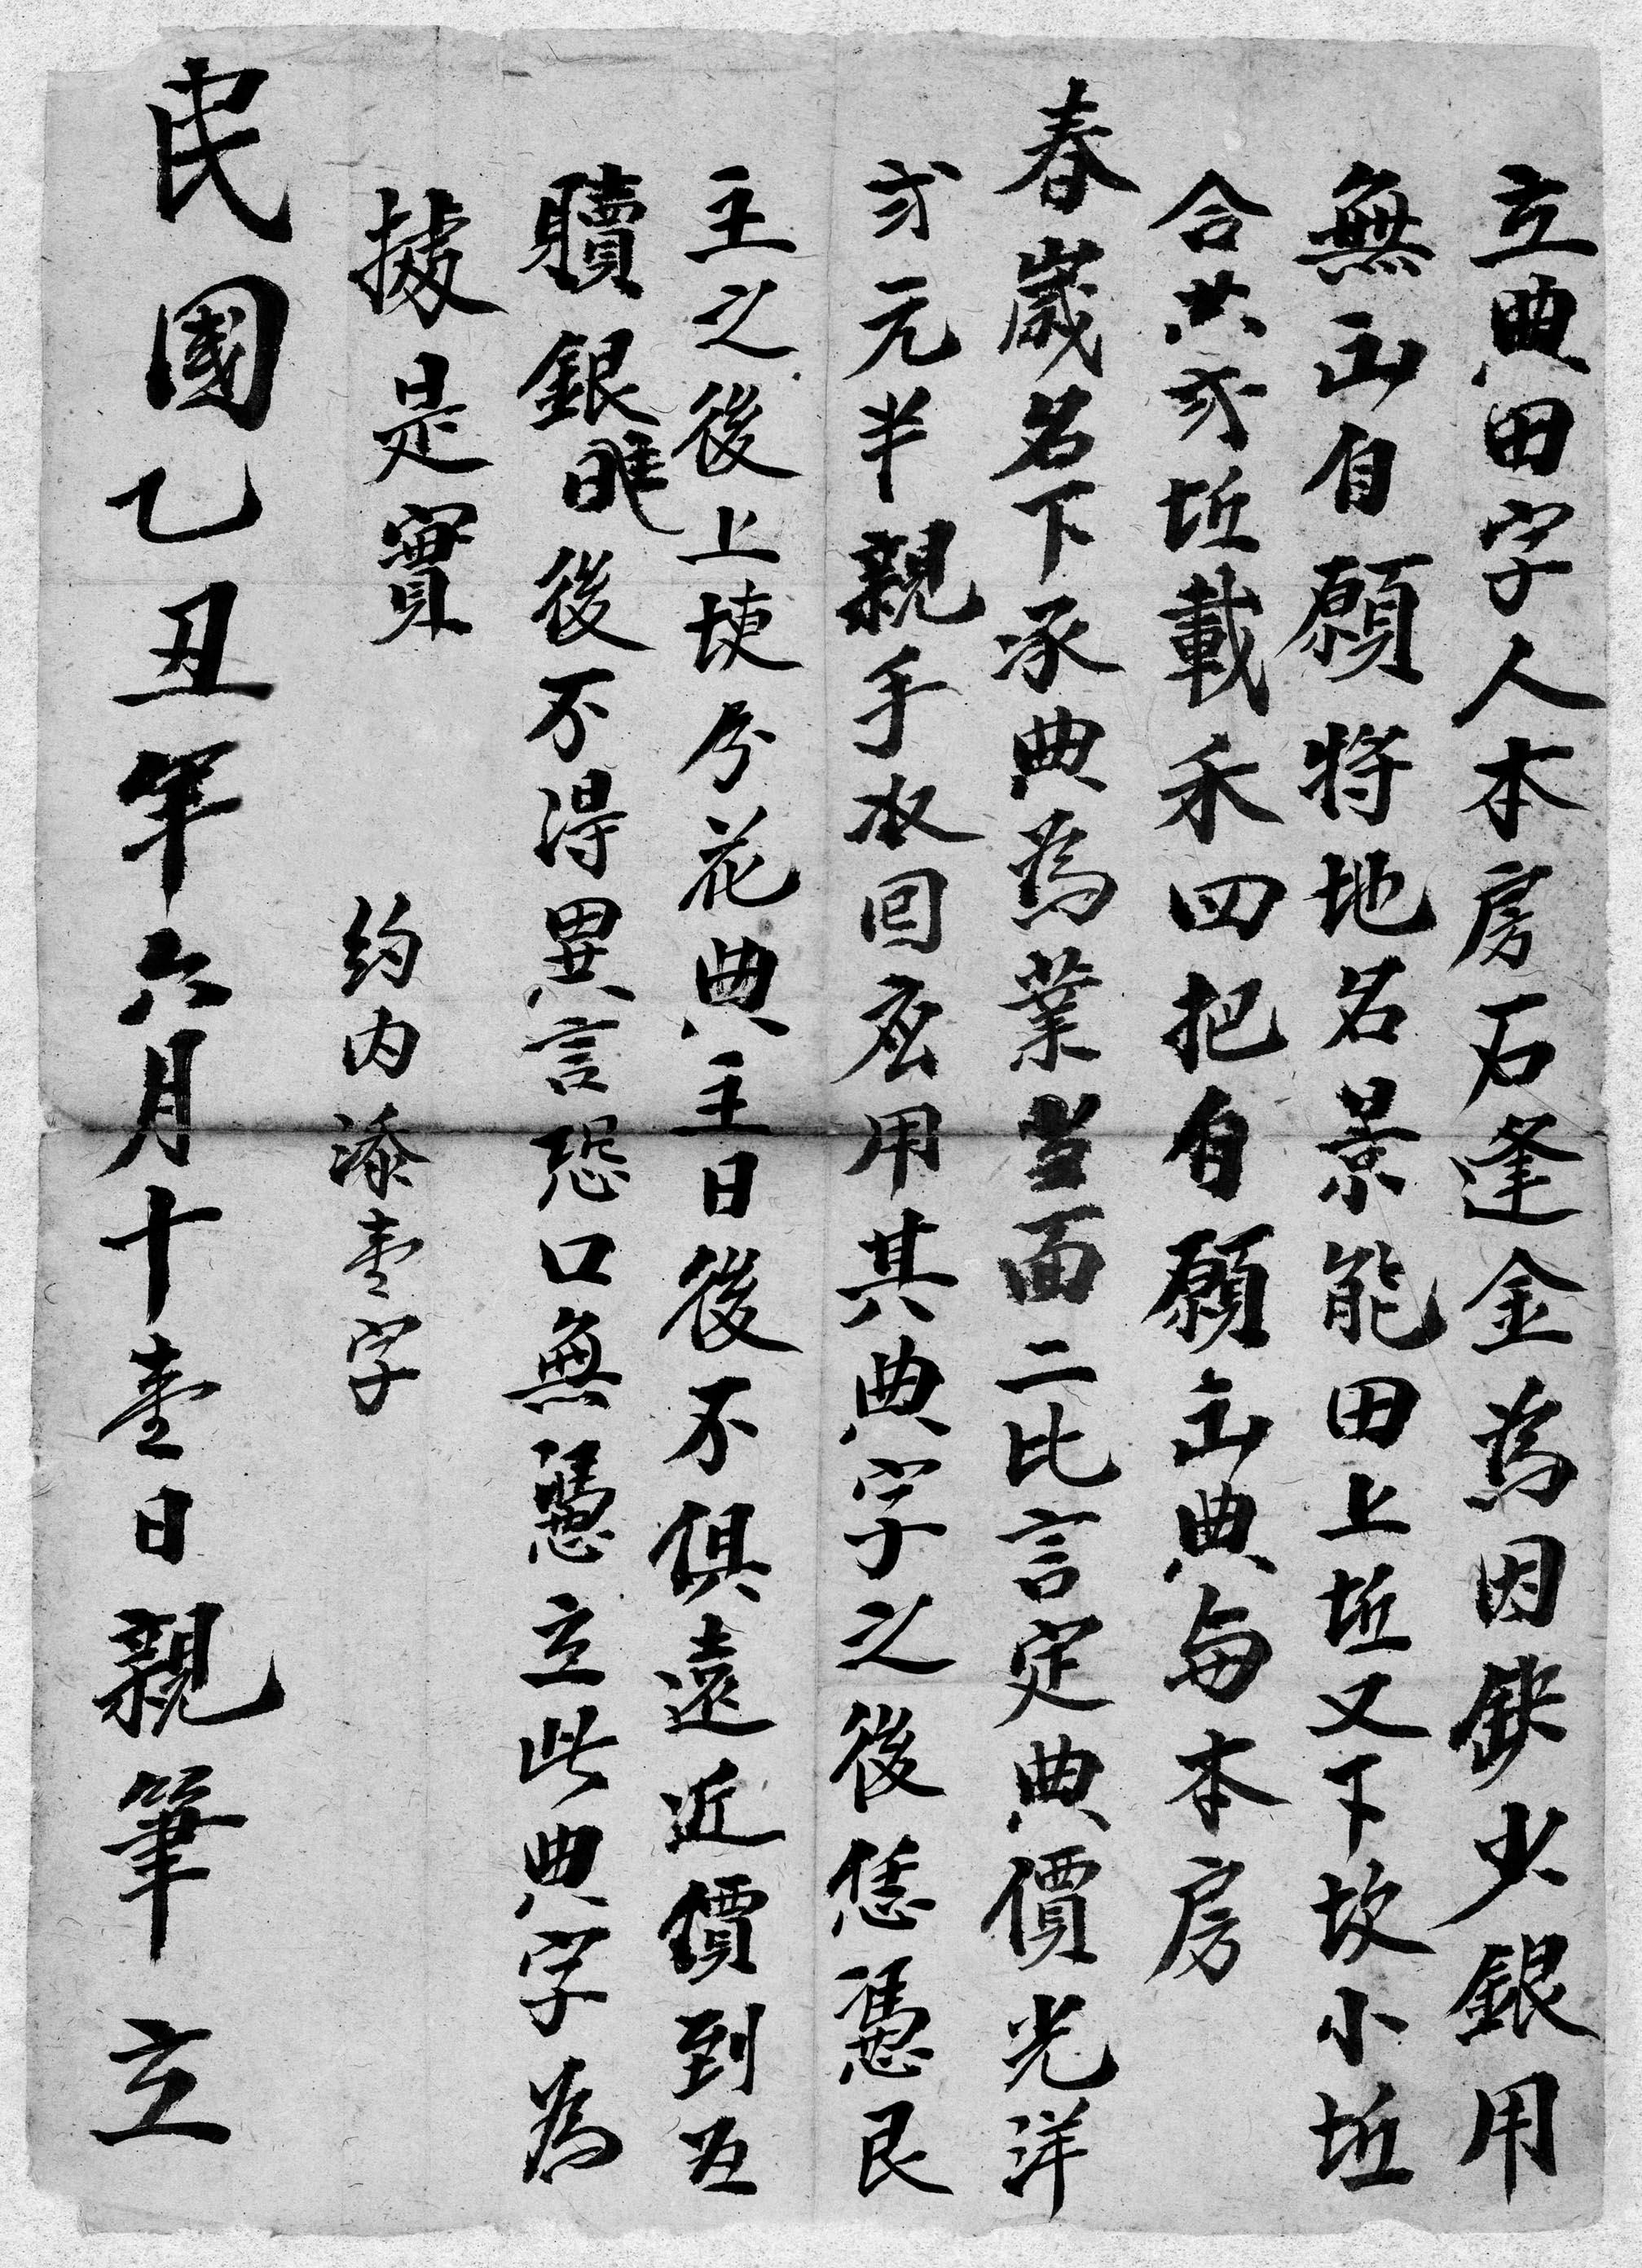 立典田字人本房石逢金為因缺少銀用
無出自願將地名景能田上坵又下坎小坵
合共弍坵載禾四把自願出典与本房
春歲名下承典為業当面二比言定典價光洋
弍元半親手收回應用其典字之後恁憑艮
主之後上埂分花典主日後不俱遠近價到
贖銀後不得異言恐口無憑立此典字為
據是實
約内添壹字
民國乙丑年六月十壹日親筆立